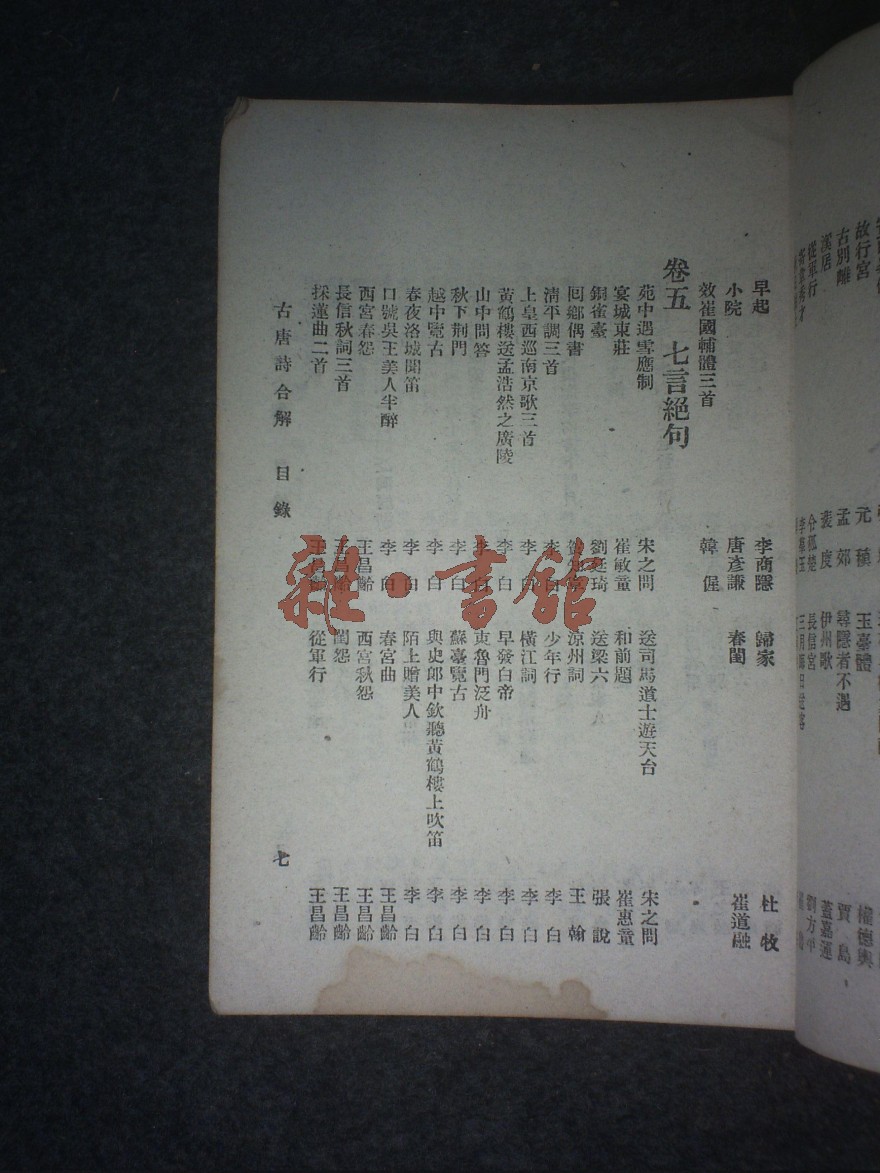 早起 李商隱 歸家 杜牧
小院 唐彥謙 春閨 崔道融
效崔國輔體三首 韓偓
卷五 七言絕句
苑中遇雪應制 宋之問 送司馬道士遊天台 宋之問
宴城東莊 崔敏童 和前題 崔惠童
銅雀臺 劉廷琦 送梁六 張說
回鄉偶書 賀知章 涼州詞 王翰
清平調三首 李白 少年行 李白
上皇西巡南京歌三首 李白 橫江詞 李白
黃鶴樓送孟浩然之廣陵 李白 早發白帝 李白
山中問答 李白 東魯門泛舟 李白
秋下荆門 李白 蘇臺覽古 李白
越中覽古 李白 與史郎中欽聽黃鶴樓上吹笛 李白
春夜洛城聞笛 李白 陌上贈美人 李白
口號吳王美人半醉 李白 春宮曲 王昌齡
西宮春怨 王昌齡 西宮秋怨 王昌齡
長信秋詞三首 王昌齡 閨怨 王昌齡
採蓮曲二首 王昌齡 從軍行 王昌齡
古唐詩合解 目錄 七
雜·書館
故行宮 元稹 玉臺體 權德輿
古別離 孟郊 尋隱者不遇 賈島
溪居 裴度 伊州歌 蓋嘉運
從軍行 令狐楚 長信宮 劉方平